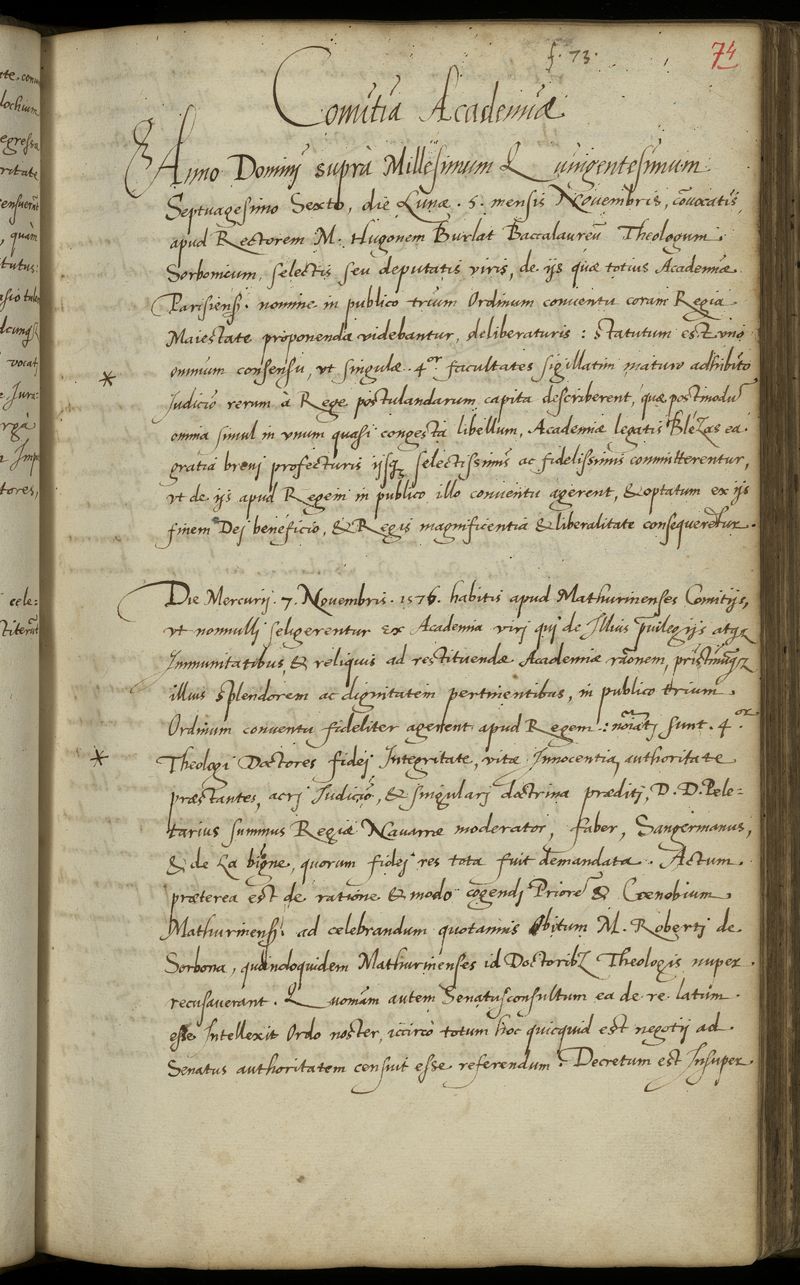 f. 73.
74
Comitia Academiæ
Anno Dominj suprà Millesimum Quingentesimum
Septuagesimo Sexto, die Lunæ . 5 . mensis Nouembris, cōuocatis
apud Rectorem M. Hugonem Burlat Baccalaureū Theologum
Sorbonicum, selectis seu deputatis viris, de ijs quæ totius Academiæ
Parisiensis nomine in publico trium Ordinum conuentu coram Regia
Maiestate proponenda videbantur, deliberaturis : statutum est vno
omnium consensu, vt singulæ . 4or facultates sigillatim maturo adhibito
Judicio rerum à Rege postulandarum capita describerent, quæ postmodū
omnia simul in vnum quasi congesta libellum, Academiæ legatis Blezas ea
gratia breuj profecturis ijsq; selectissimis ac fidelissimis committerentur,
vt de ijs apud Regem in publico illo conuentu agerent, & optatum ex ijs
finem Dej beneficio, & Regis magnificentia & liberalitate consequerētur.
Die Mercurij . 7 . Nouembris . 1576. habitis apud Mathurinenses Comitijs,
vt nonnullj seligerentur ex Academia virj qui de Illius p̄uilegijs atq;
Immunitatibus & reliquis ad restituendæ Academiæ rāonem, pristinumq;
illius splendorem ac dignitatem pertinentibus, in publico trium
Ordinum conuentu fideliter agerent apud Regem : noīatj sunt . 4or
Theologi Doctores fidej Integritate, vitæ Innocentia, authoritate
præstantes, acrj Judicio, & singularj doctrina præditj, D. D. Pele=
tarius summus Regiæ Nauarræ moderator, faber, Sangermanus,
& de La bigne, quorum fidej res tota fuit demandata . Actum
præterea est de ratione & modo cogendj Priorē & Cœnobium
Mathurinensē ad celebrandum quotannis Obitum M. Robertj de
Sorbona, quandoquidem Mathurinenses id Doctorib; Theologis nuper
recusauerant . Quoniam autem Senatusconsultum ea de re latum
esse Intellexit Ordo noster, iccirco totum hoc quicquid est negotij ad
Senatus authoritatem censuit esse referendum . Decretum est Insuper